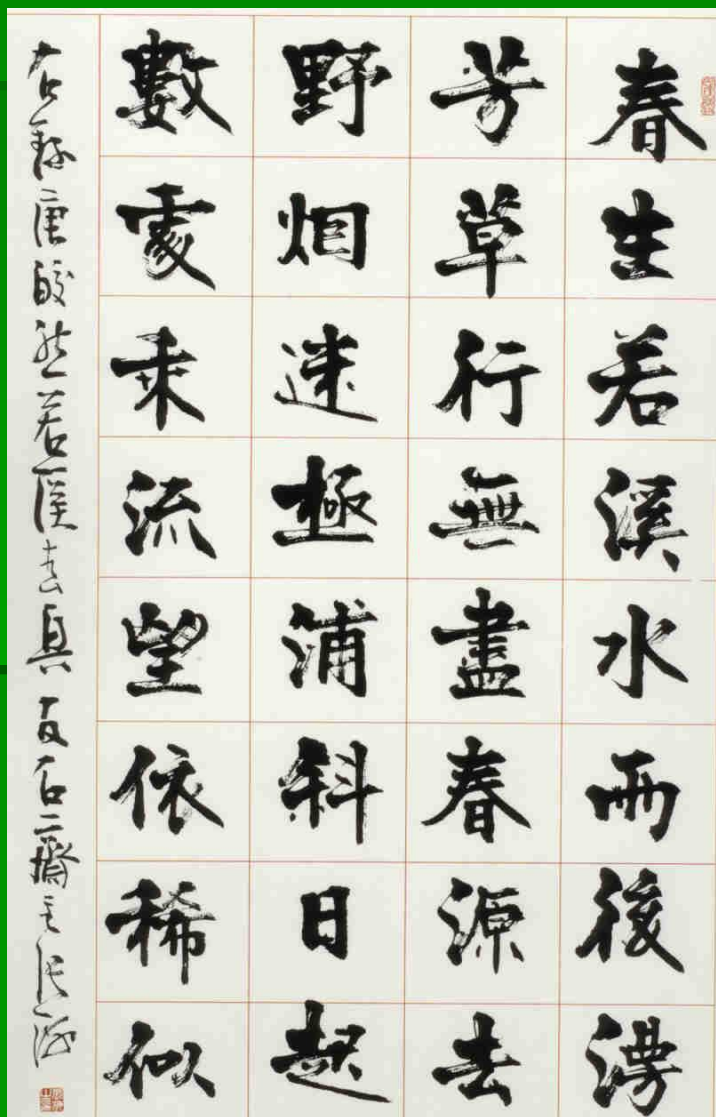 春生若溪水雨後漫
芳草行無盡春源去
野烟迷極浦斜日起
數處乘流望依稀似
右録唐皎然若溪春興 石齋主